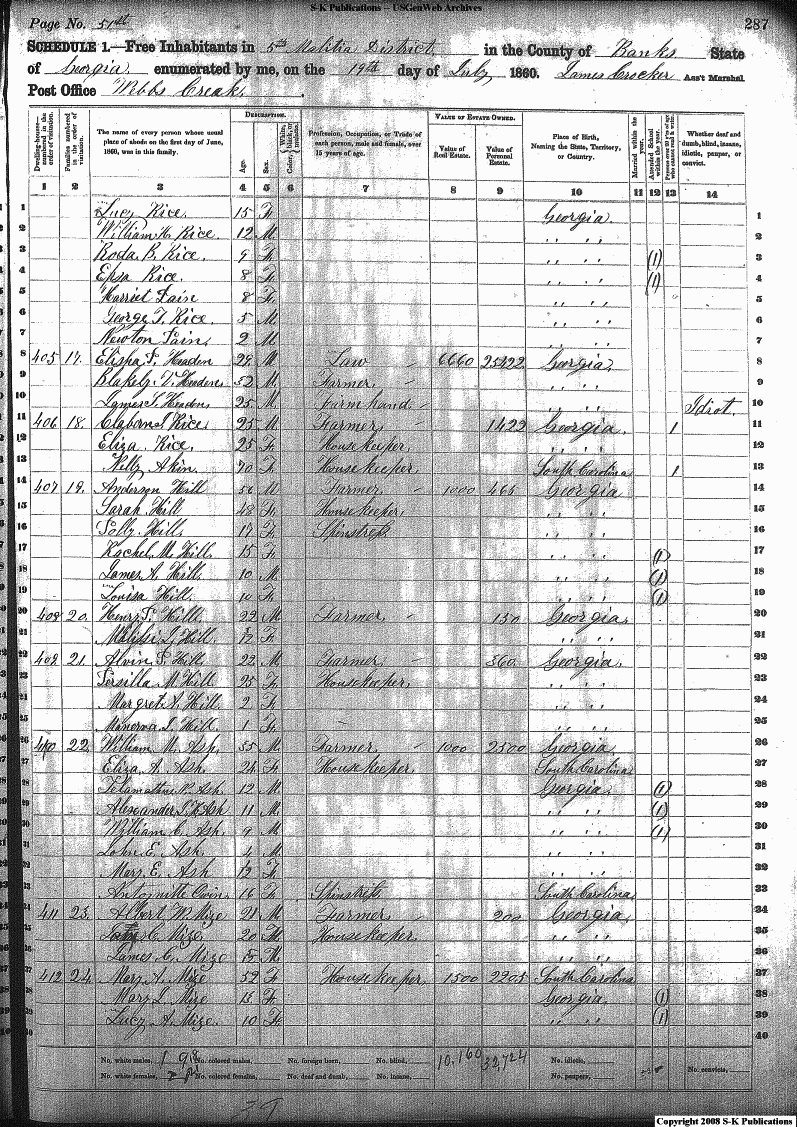 S-K Publications – USGenWeb Archives
Page No. 51st
287
SCHEDULE 1.—Free Inhabitants in 5th Malitia District in the County of Banks State
of Georgia enumerated by me, on the 19th day of July 1860. James Crocker Ass't Marshal
Post Office Webbs Creak
Dwelling-houses—numbered in the order of visitation.
Families numbered in the order of visitation.
The name of every person whose usual place of abode on the first day of June, 1860, was in this family.
DESCRIPTION.
Age.
Sex.
Color, White, black, or mulatto.
Profession, Occupation, or Trade of each person, male and female, over 15 years of age.
VALUE OF ESTATE OWNED.
Value of Real Estate.
Value of Personal Estate.
Place of Birth, Naming the State, Territory, or Country.
Married within the year.
Attended School within the year.
Persons over 20 y'rs of age who cannot read & write.
Whether deaf and dumb, blind, insane, idiotic, pauper, or convict.
1 2 3 4 5 6 7 8 9 10 11 12 13 14
1 Lucy Rice 15 F Georgia 1
2 William H. Rice 12 M " " 2
3 Roda B. Rice 9 F " " (1) 3
4 Rice 8 F " " (1) 4
5 Harriet 8 F " " 5
6 George T. Rice 5 M " " 6
7 Newton 2 M " " 7
8 405 17 Elisha Headen 29 M Law 6660 25422 Georgia 8
9 Blakely Headen 52 M Farmer " " 9
10 James Headen 25 M Farm hand " " Idiot 10
11 406 18 Claborn Rice 25 M Farmer 1422 Georgia 1 11
12 Eliza Rice 25 F House keeper " " 12
13 Nelly Akin 70 F House keeper South Carolina 1 13
14 407 19 Anderson Hill 56 M Farmer 1000 465 Georgia 14
15 Sarah Hill 48 F House keeper " " 15
16 Polly Hill 17 F Spinstress " " 16
17 Rachel M. Hill 15 F " " (1) 17
18 James A. Hill 10 M " " (1) 18
19 Louisa Hill F " " (1) 19
20 408 20 Henry Hill 22 M Farmer 150 Georgia 20
21 Hill F " " 21
22 409 21 Alvin Hill 22 M Farmer 360 Georgia 22
23 M Hill 25 F House keeper " " 23
24 Margret Hill 2 F " " 24
25 Manerva Hill 1 F " " 25
26 410 22 William M. Ash 35 M Farmer 1000 2500 Georgia 26
27 Eliza A. Ash 24 F House keeper South Carolina 27
28 Ash 12 M Georgia (1) 28
29 Alexander Ash 11 M " " (1) 29
30 William C. Ash 9 M " " (1) 30
31 John E. Ash 4 M " " 31
32 Mary E. Ash F " " 32
33 16 F Spinstress South Carolina 33
34 411 23 Albert W. Mize 21 M Farmer 200 Georgia 34
35 C. Mize 20 House keeper " " 35
36 James C. Mize M " " 36
37 412 24 Mary A. Mize 52 F House keeper 1500 2205 South Carolina 37
38 Mary Mize 15 F Georgia (1) 38
39 Lucy A. Mize 10 F " " (1) 39
40
No. white males, No. colored males, No. foreign born, No. blind, 10,160 32,724 No. idiotic,
No. white females, No. colored females, No. deaf and dumb, No. insane, No. paupers, No. convicts,
39
Copyright 2008 S-K Publications